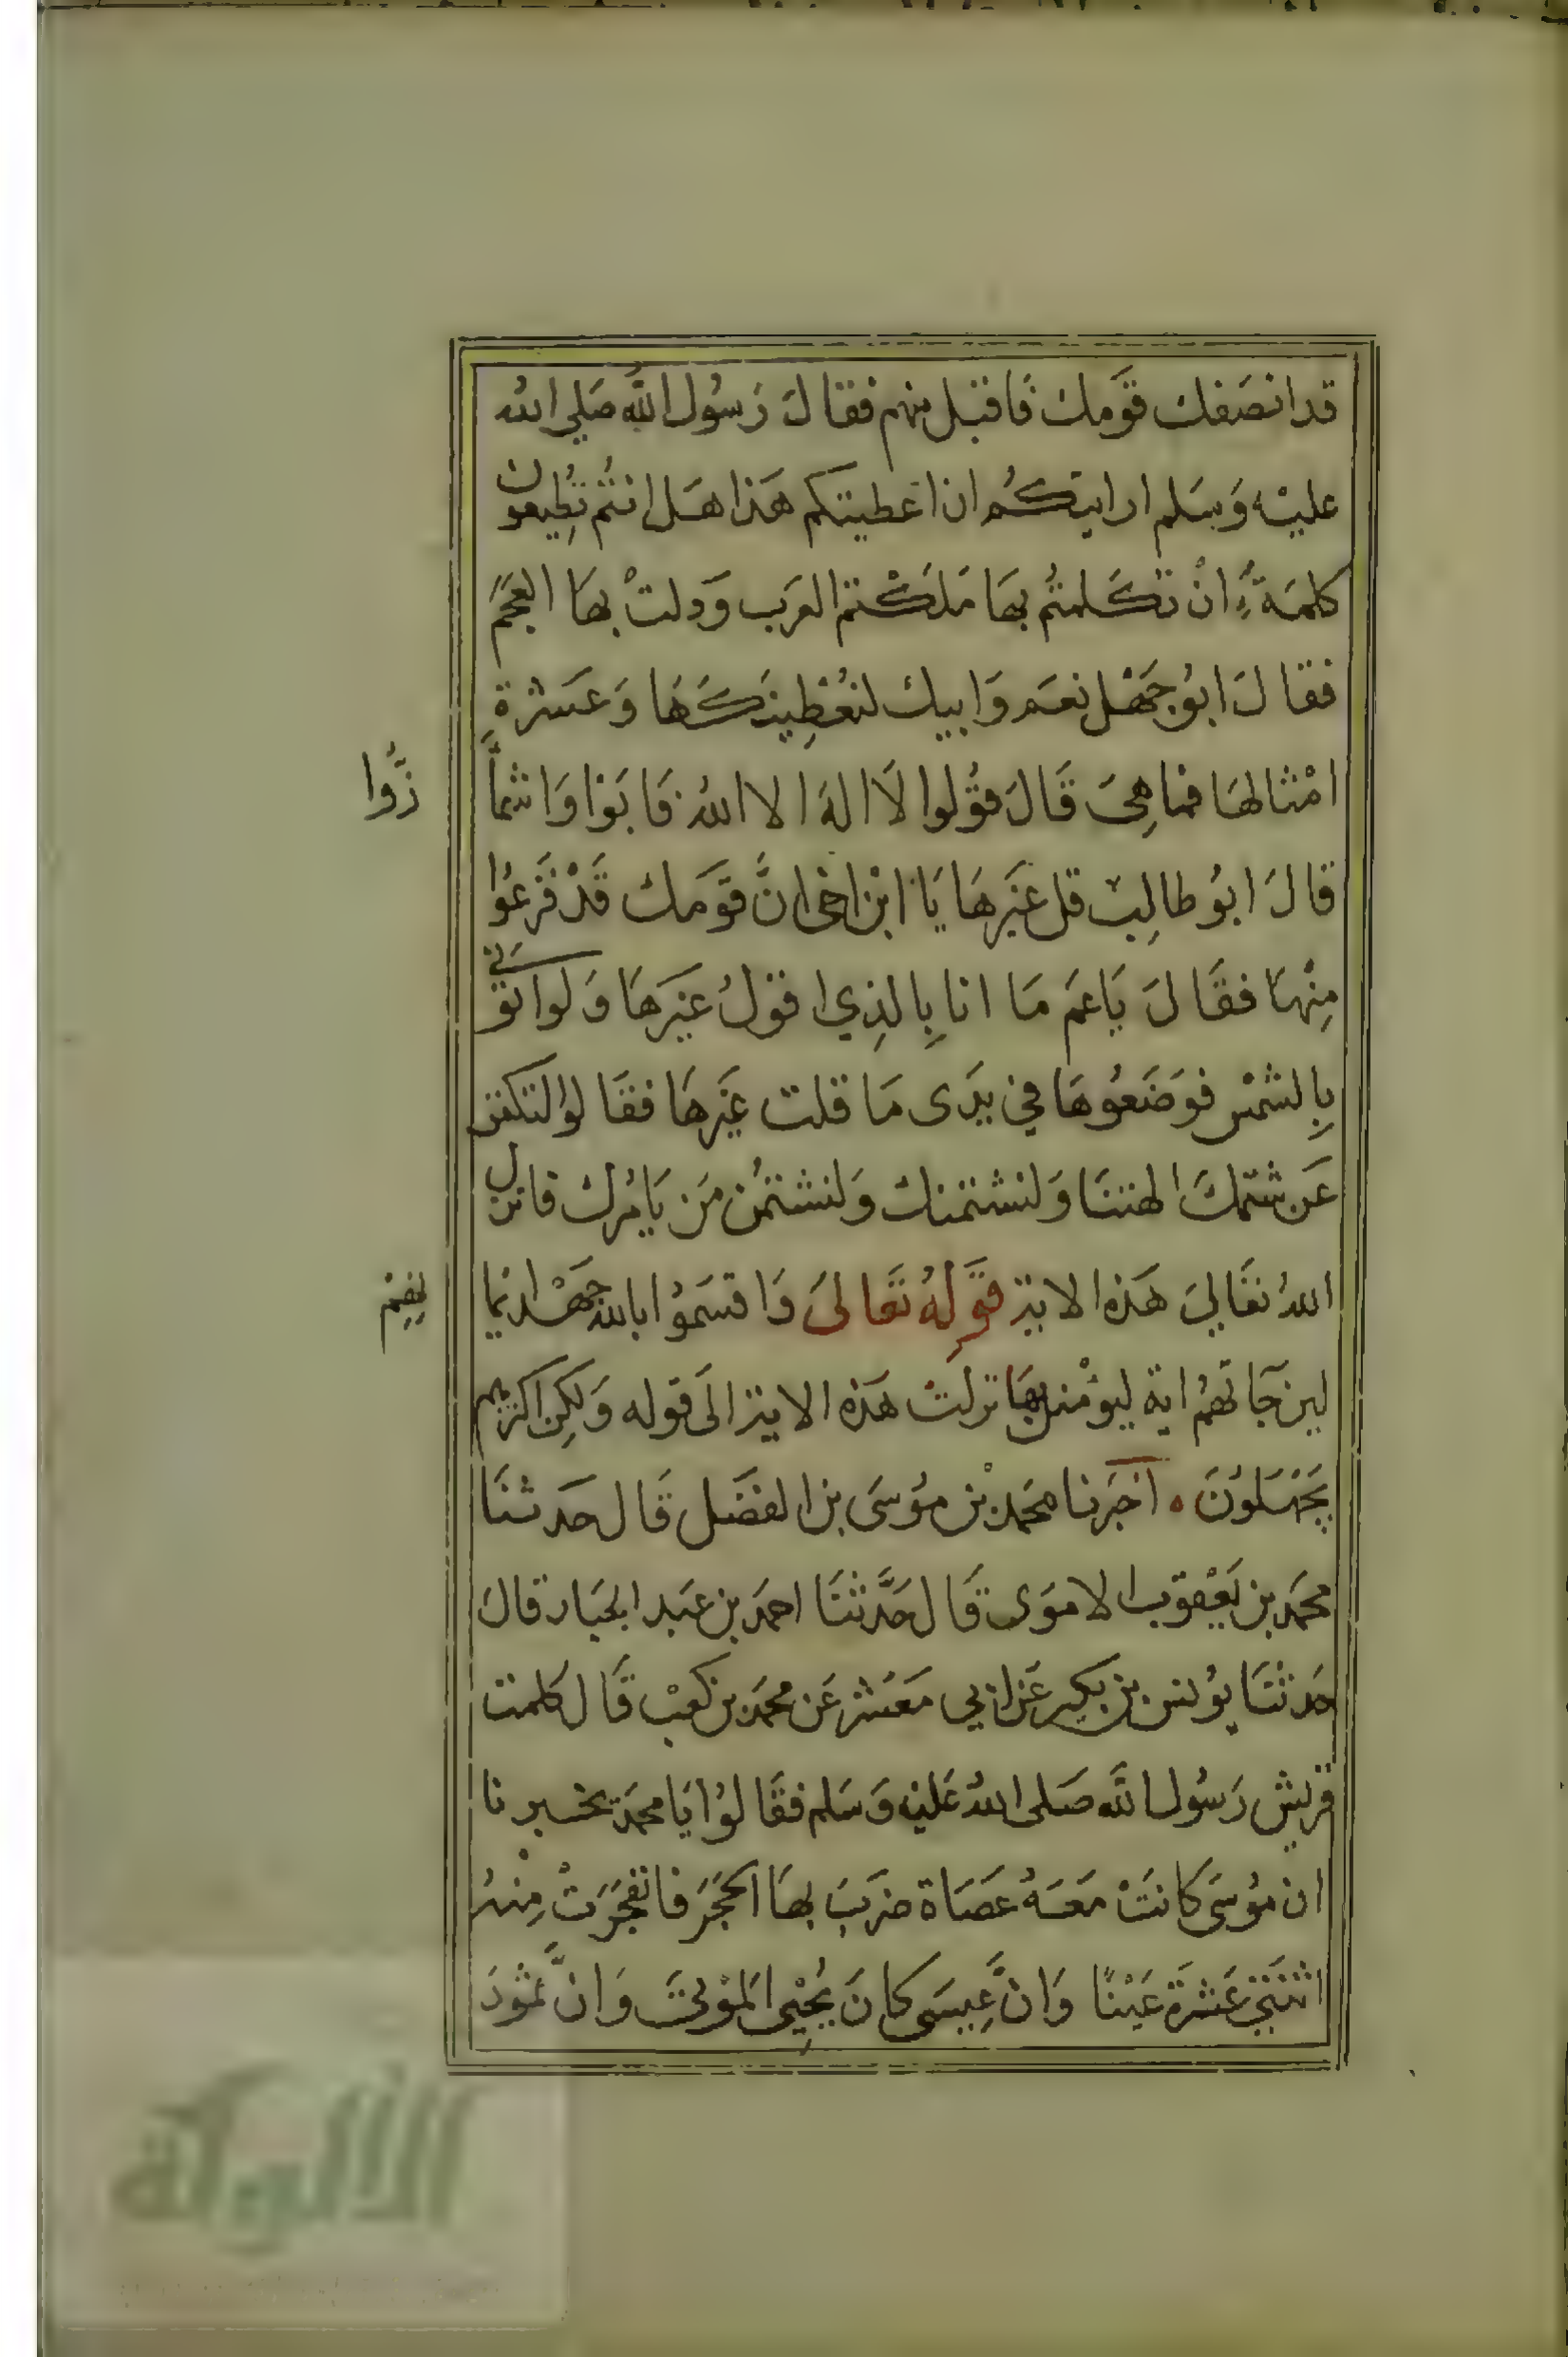 قد انصَفك قَومك فَاقبَل منهم فقالَ رَسُول اللَّه صَلي الله
عليْه وَسَلم ارايتكُم ان اعطيتكم هَذا هَل انتُم تُطِيعون
كلمَة ان تكَلمتُم بهَا مَلَكْتم العَرب وَدلتْ بهَا العَجَم
فقالَ ابُو جَهْل نعَم وَابيك لنُعْطِينكَهَا وَعَشرةِ
امْثالهَا فمَا هِيَ قَالَ قوُلوا لَا الهَ الا اللهُ فَابَوْا وَاشمأَ
زُّوا
قالَ ابوُ طالِب قل غيَرهَا يَا ابْن اخي انَّ قوَمك قَدْ فَزعُوا
مِنْهَا فقَالَ يَاعَم مَا انا بِالذِي اقوَلُ غيَرهَا وَلو اتو
َني
بِالشمْس فوَضَعُوهَا في يَدَى مَا قلت غيَرهَا فقَالوا لتكفن
عَن شتمكَ الهتنَا وَلنشتمنك وَلنشتمُن مَن يَامُرك فانزل
اللهُ تعَاليَ هَذه الاية قَولهُ تَعَالىَ وَاقسَموُا بالله جَهْد ايما
نِهِمْ
لين جَاتهُم اية ليوُمْنن بهَا نزلتْ هَذه الاية الَى قوله وَلكِن اكثرهم
يَجْهَلوُنَ ۰ اخبَرنا محمَد بْن موُسَى بن الفضَل قَال حَدثنَا
محمَد بن يَعْقوب الامَوى قَال حَدَّثنَا احمَد بن عَبد الجبَار قالَ
حَدثْنَا يوُنس بن بكير عَن ابي مَعْشر عَن محمَد بن كعبْ قَال كلمت
قريش رَسُول اللَّه صَلى اللهُ عَليْه وَسَلم فقَالوُا يَا محمَد تخبرنا
ان موُسَى كانتَْ مَعَهُ عَصَاة ضرَبَ بهَا الحَجَر فانفجَرَتْ مِنْهُ
اثنَتيْ عَشرَة عَيْنًا وَانَّ عِيسَى كانَ يُحِيْي المَوْتيَ وَانَّ ثموُدَ
الألوكة